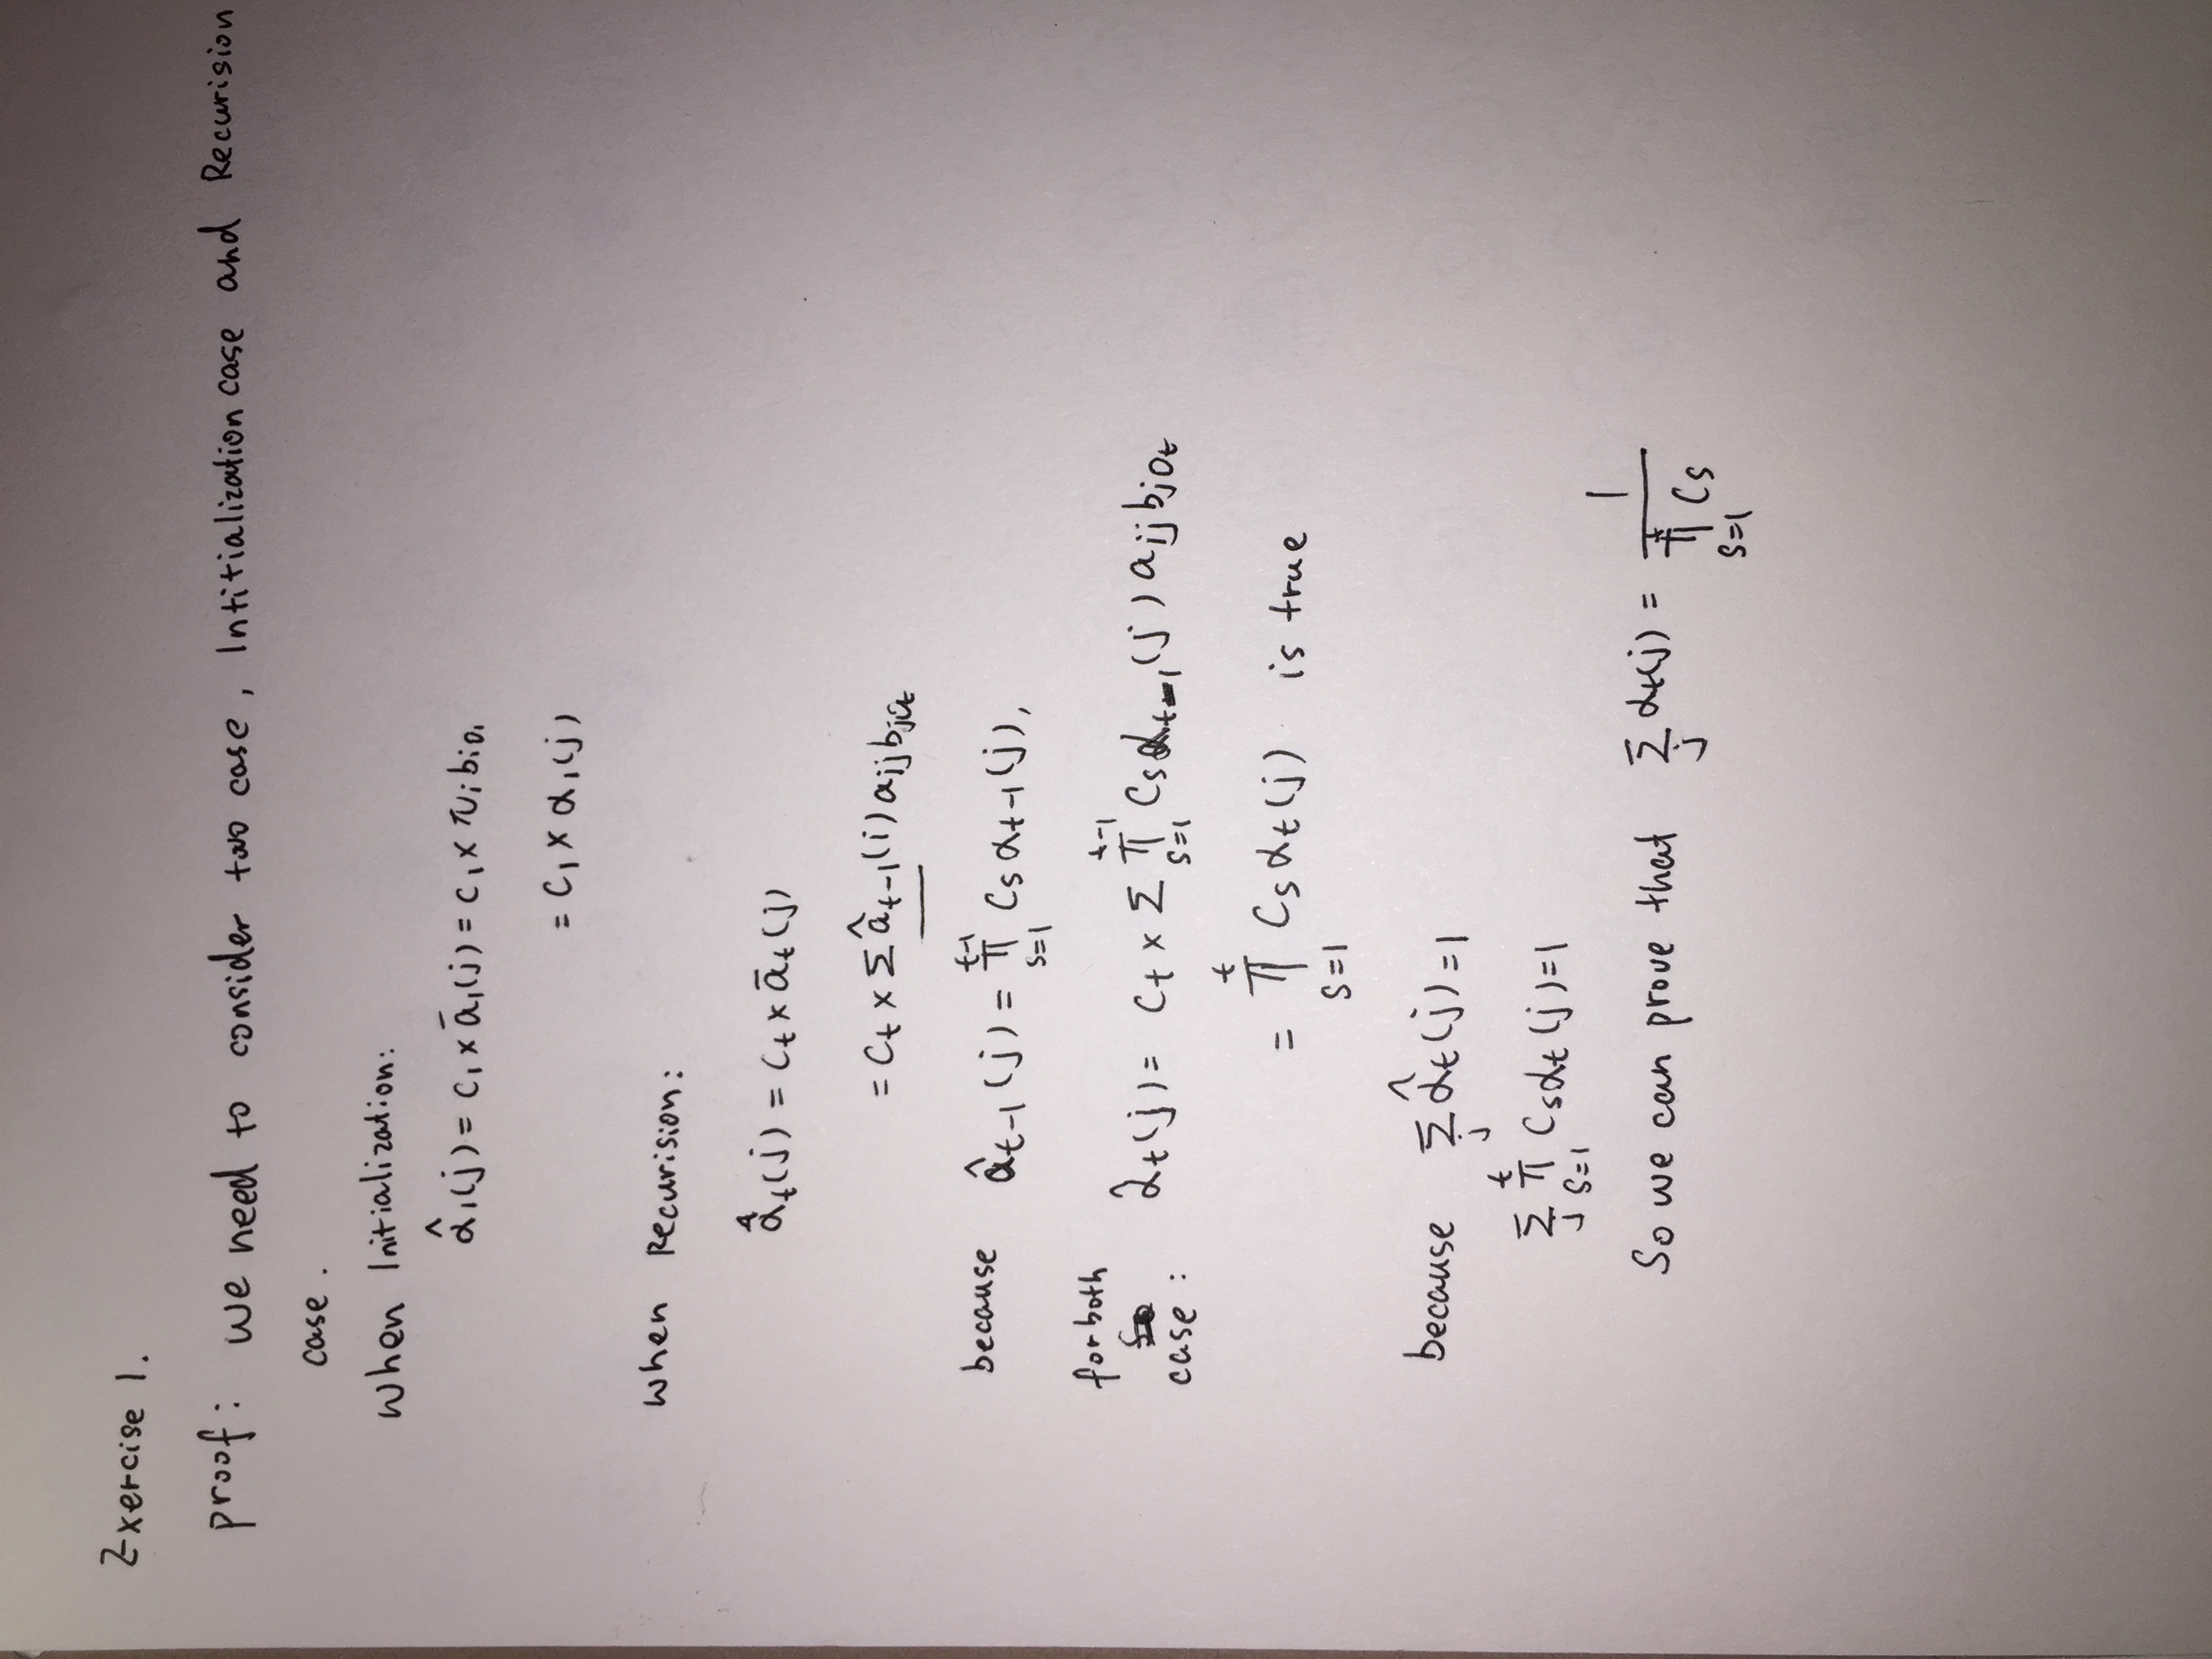 Exercise 1.
proof: we need to consider two case, Intitialization case and Recurision
case.
When Initialization:
α̂₁(j) = C₁ × ā₁(j) = C₁ × πᵢ bᵢo₁
= C₁ × α₁(j)
when Recurision:
α̂ₜ(j) = Cₜ × āₜ(j)
= Cₜ × Σ âₜ₋₁(i) aᵢⱼ bⱼoₜ
because âₜ₋₁(j) = ∏_{s=1}^{t-1} Cs αₜ₋₁(j),
for both case: αₜ(j) = Cₜ × Σ ∏_{s=1}^{t-1} Cs αₜ₋₁(j) aᵢⱼ bⱼoₜ
= ∏_{s=1}^{t} Cs αₜ(j) is true
because Σⱼ α̂ₜ(j) = 1
Σⱼ ∏_{s=1}^{t} Cs αₜ(j) = 1
So we can prove that Σⱼ αₜ(j) = 1 / ∏_{s=1}^{t} Cs